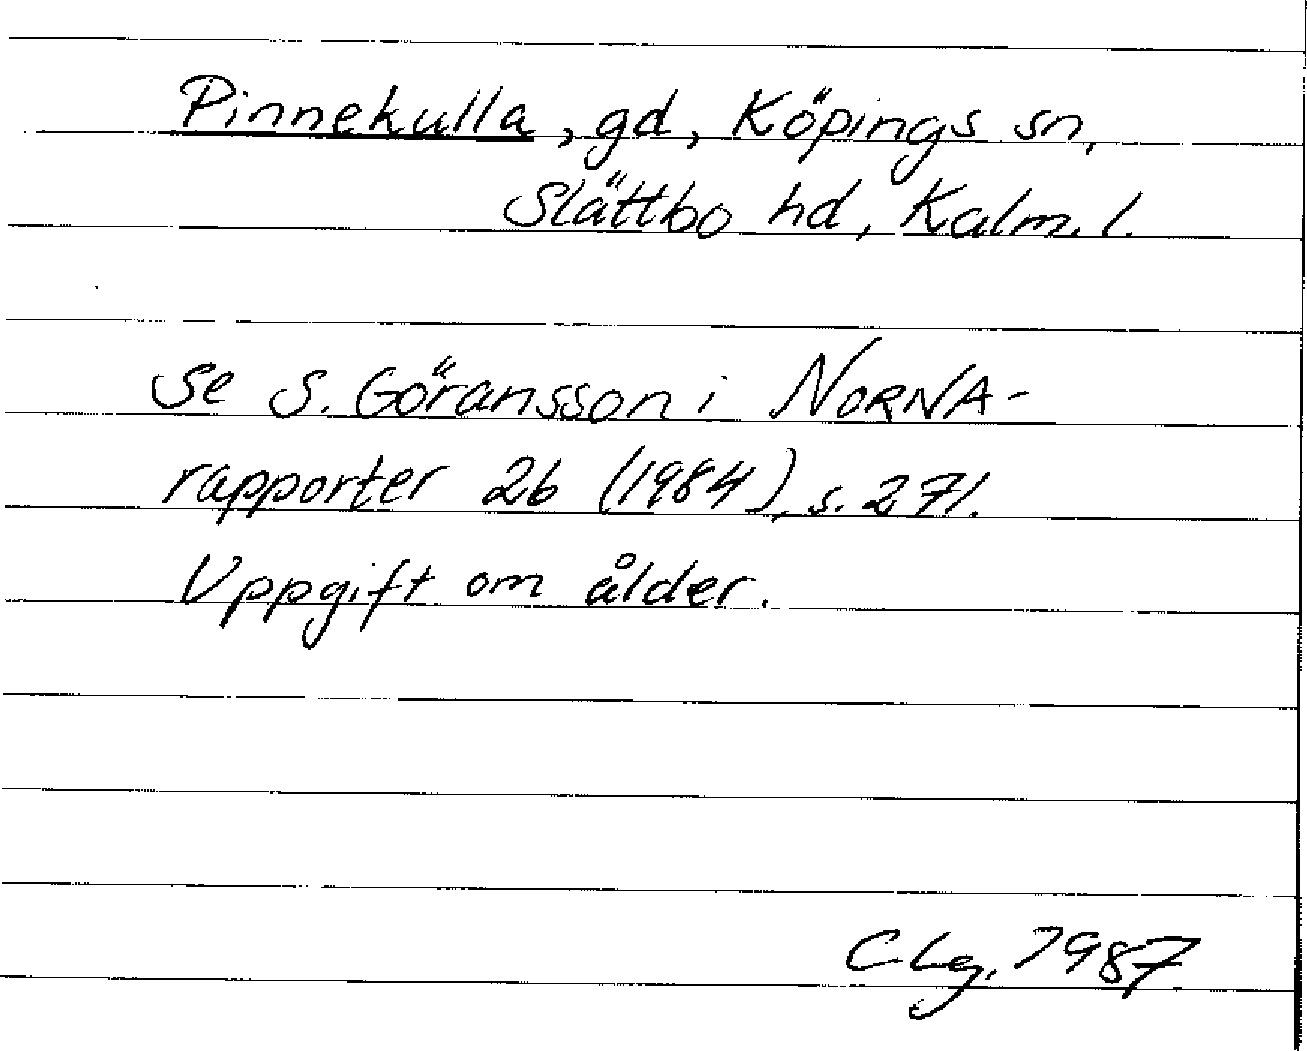 Pinnekulla, gd, Köpings sn,
Slättbo hd, Kalm. l.
Se S. Göransson i NORNA-
rapporter 26 (1984), s. 271.
Uppgift om ålder.
CLg. 1987.